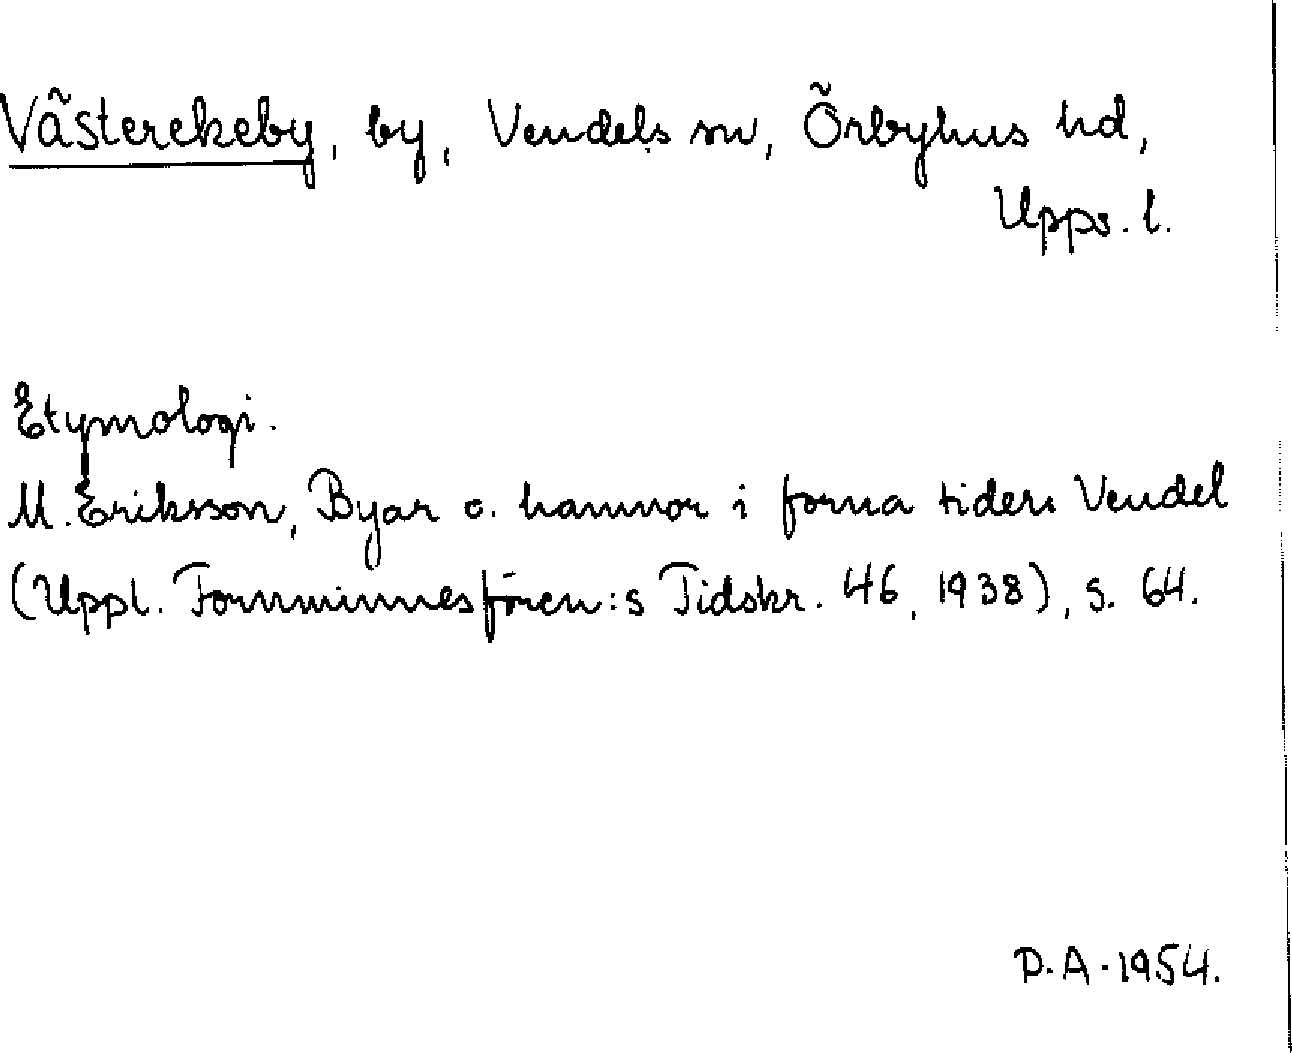 Västerekeby, by, Vendels sn, Örbyhus hd,
Upps. l.
Etymologi.
M. Eriksson, Byar o. hamnor i forna tiders Vendel
(Uppl. Fornminnesfören:s Tidskr. 46, 1938), s. 64.
D.A. 1954.